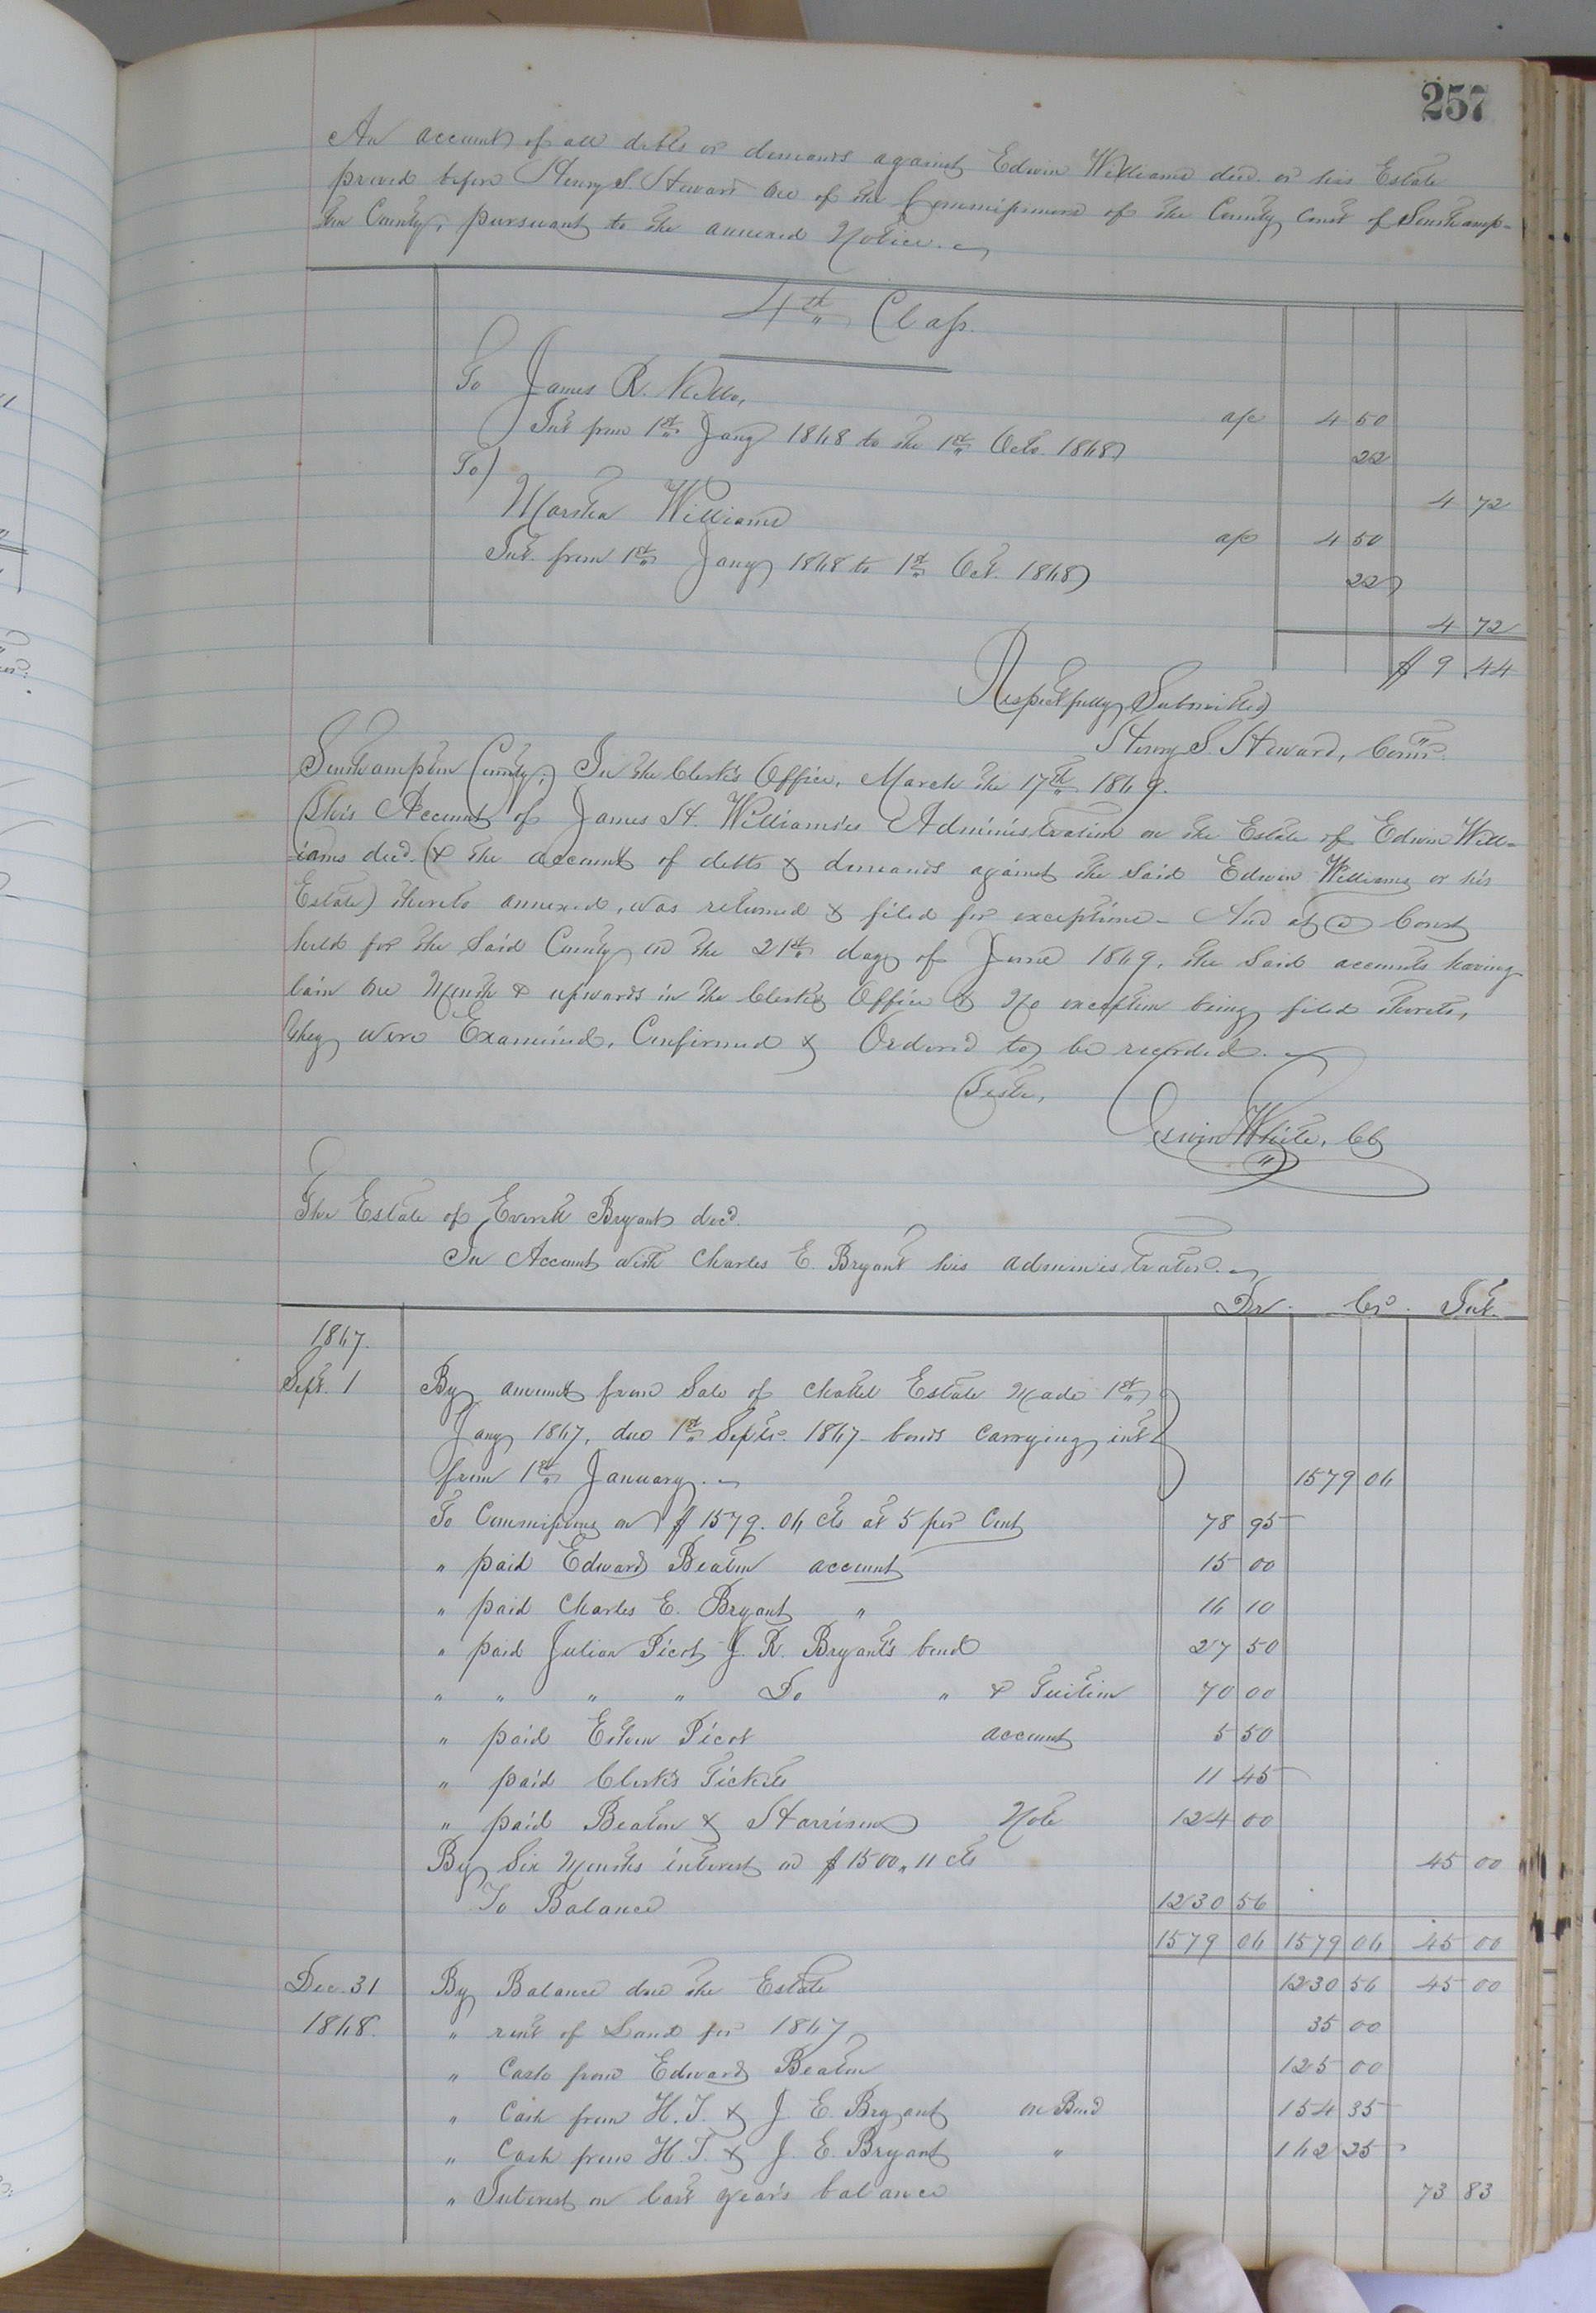 257
An account of all debts or demands against Edwin Williams decd. or his Estate
proved before Henry S. Steward one of the Commissioners of the County Court of Southamp-
ton County, pursuant to the annexed Notice.
4th Class.
To James R. a/c 4 50
Int from 1st Jany 1868 to the 1st Octo. 1868 22
4 72
To
Martha Williams a/c 4 50
Int. from 1st Jany 1868 to 1st Oct. 1868 22
4 72
$ 9 44
Respectfully Submitted
Henry S. Steward, Comr.
Southampton County; In the Clerk's Office, March the 17th 1869.
This Account of James H. Williams'es Administration on the Estate of Edwin Will-
iams decd. (& the account of debts & demands against the said Edwin Williams or his
Estate) thereto annexed, was returned & filed for exceptions - And at a Court
held for the said County on the 21st day of June 1869, the said accounts having
lain one Month & upwards in the Clerk's Office & no exception being filed thereto,
they were Examined, Confirmed & Ordered to be recorded.
Teste,
White, CC
The Estate of Everett Bryant decd.
In Account with Charles E. Bryant his administrator.
Dr. Cr. Int.
1867.
Sept. 1 By amount from Sale of chattel Estate made 1st
Jany 1867, due 1st Septr. 1867 bonds carrying int
from 1st January. 1579 06
To Commissions on $1579.06 cts at 5 per Cent 78 95
" paid Edward Beaton account 15 00
" paid Charles E. Bryant " 16 10
" paid Julian Picot J. R. Bryant's bond 27 50
" " " " Do " & Tuition 70 00
" paid Picot account 5 50
" paid Clerk's Tickets 11 45
" paid Beaton & Harrison Note 124 00
By Six Months interest on $1500,,11 cts 45 00
To Balance 1230 56
1579 06 1579 06 45 00
Dec. 31 By Balance due the Estate 1230 56 45 00
1868. " rent of Land for 1867 35 00
" Cash from Edward Beaton 125 00
" Cash from H. T. & J. E. Bryant on Bond 154 35
" Cash from H. T. & J. E. Bryant " 162 25
" Interest on last year's balance 73 83